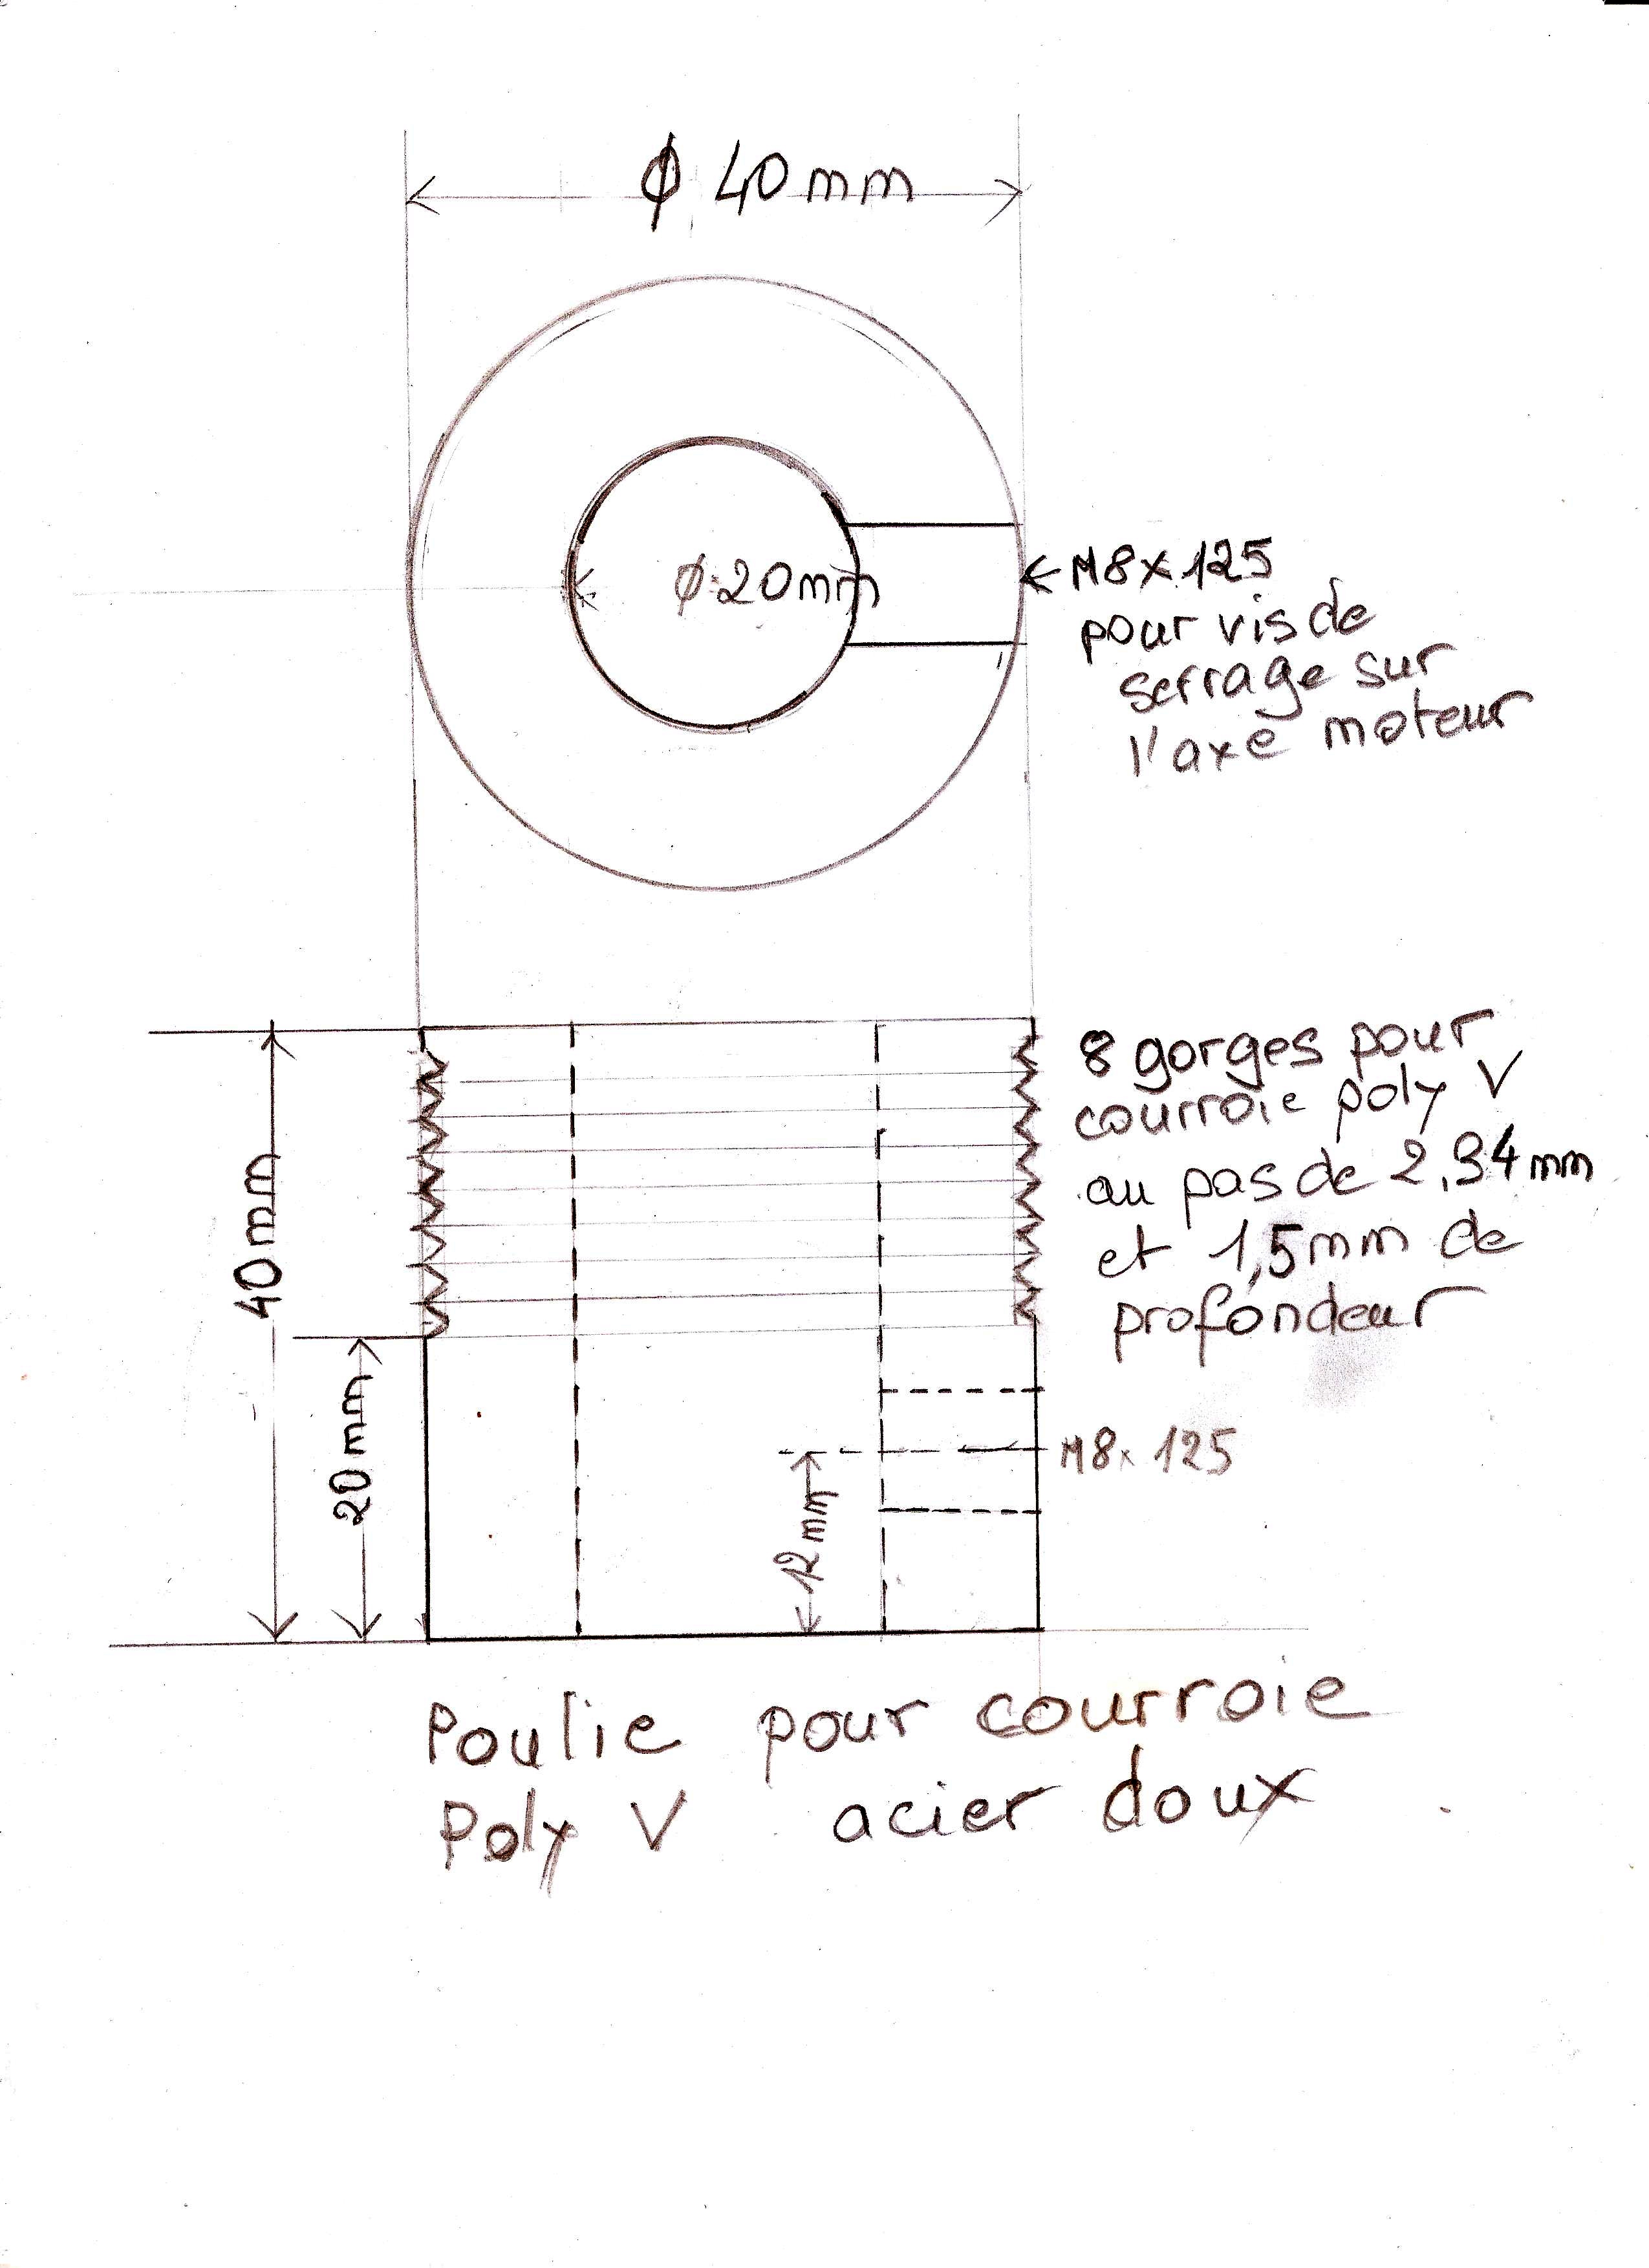 ϕ 40mm
ϕ 20mm
M8x125
pour vis de
serrage sur
l'axe moteur
8 gorges pour
courroie poly V
au pas de 2,34mm
et 1,5mm de
profondeur
40mm
20mm
12mm
M8x125
Poulie pour courroie
Poly V acier doux